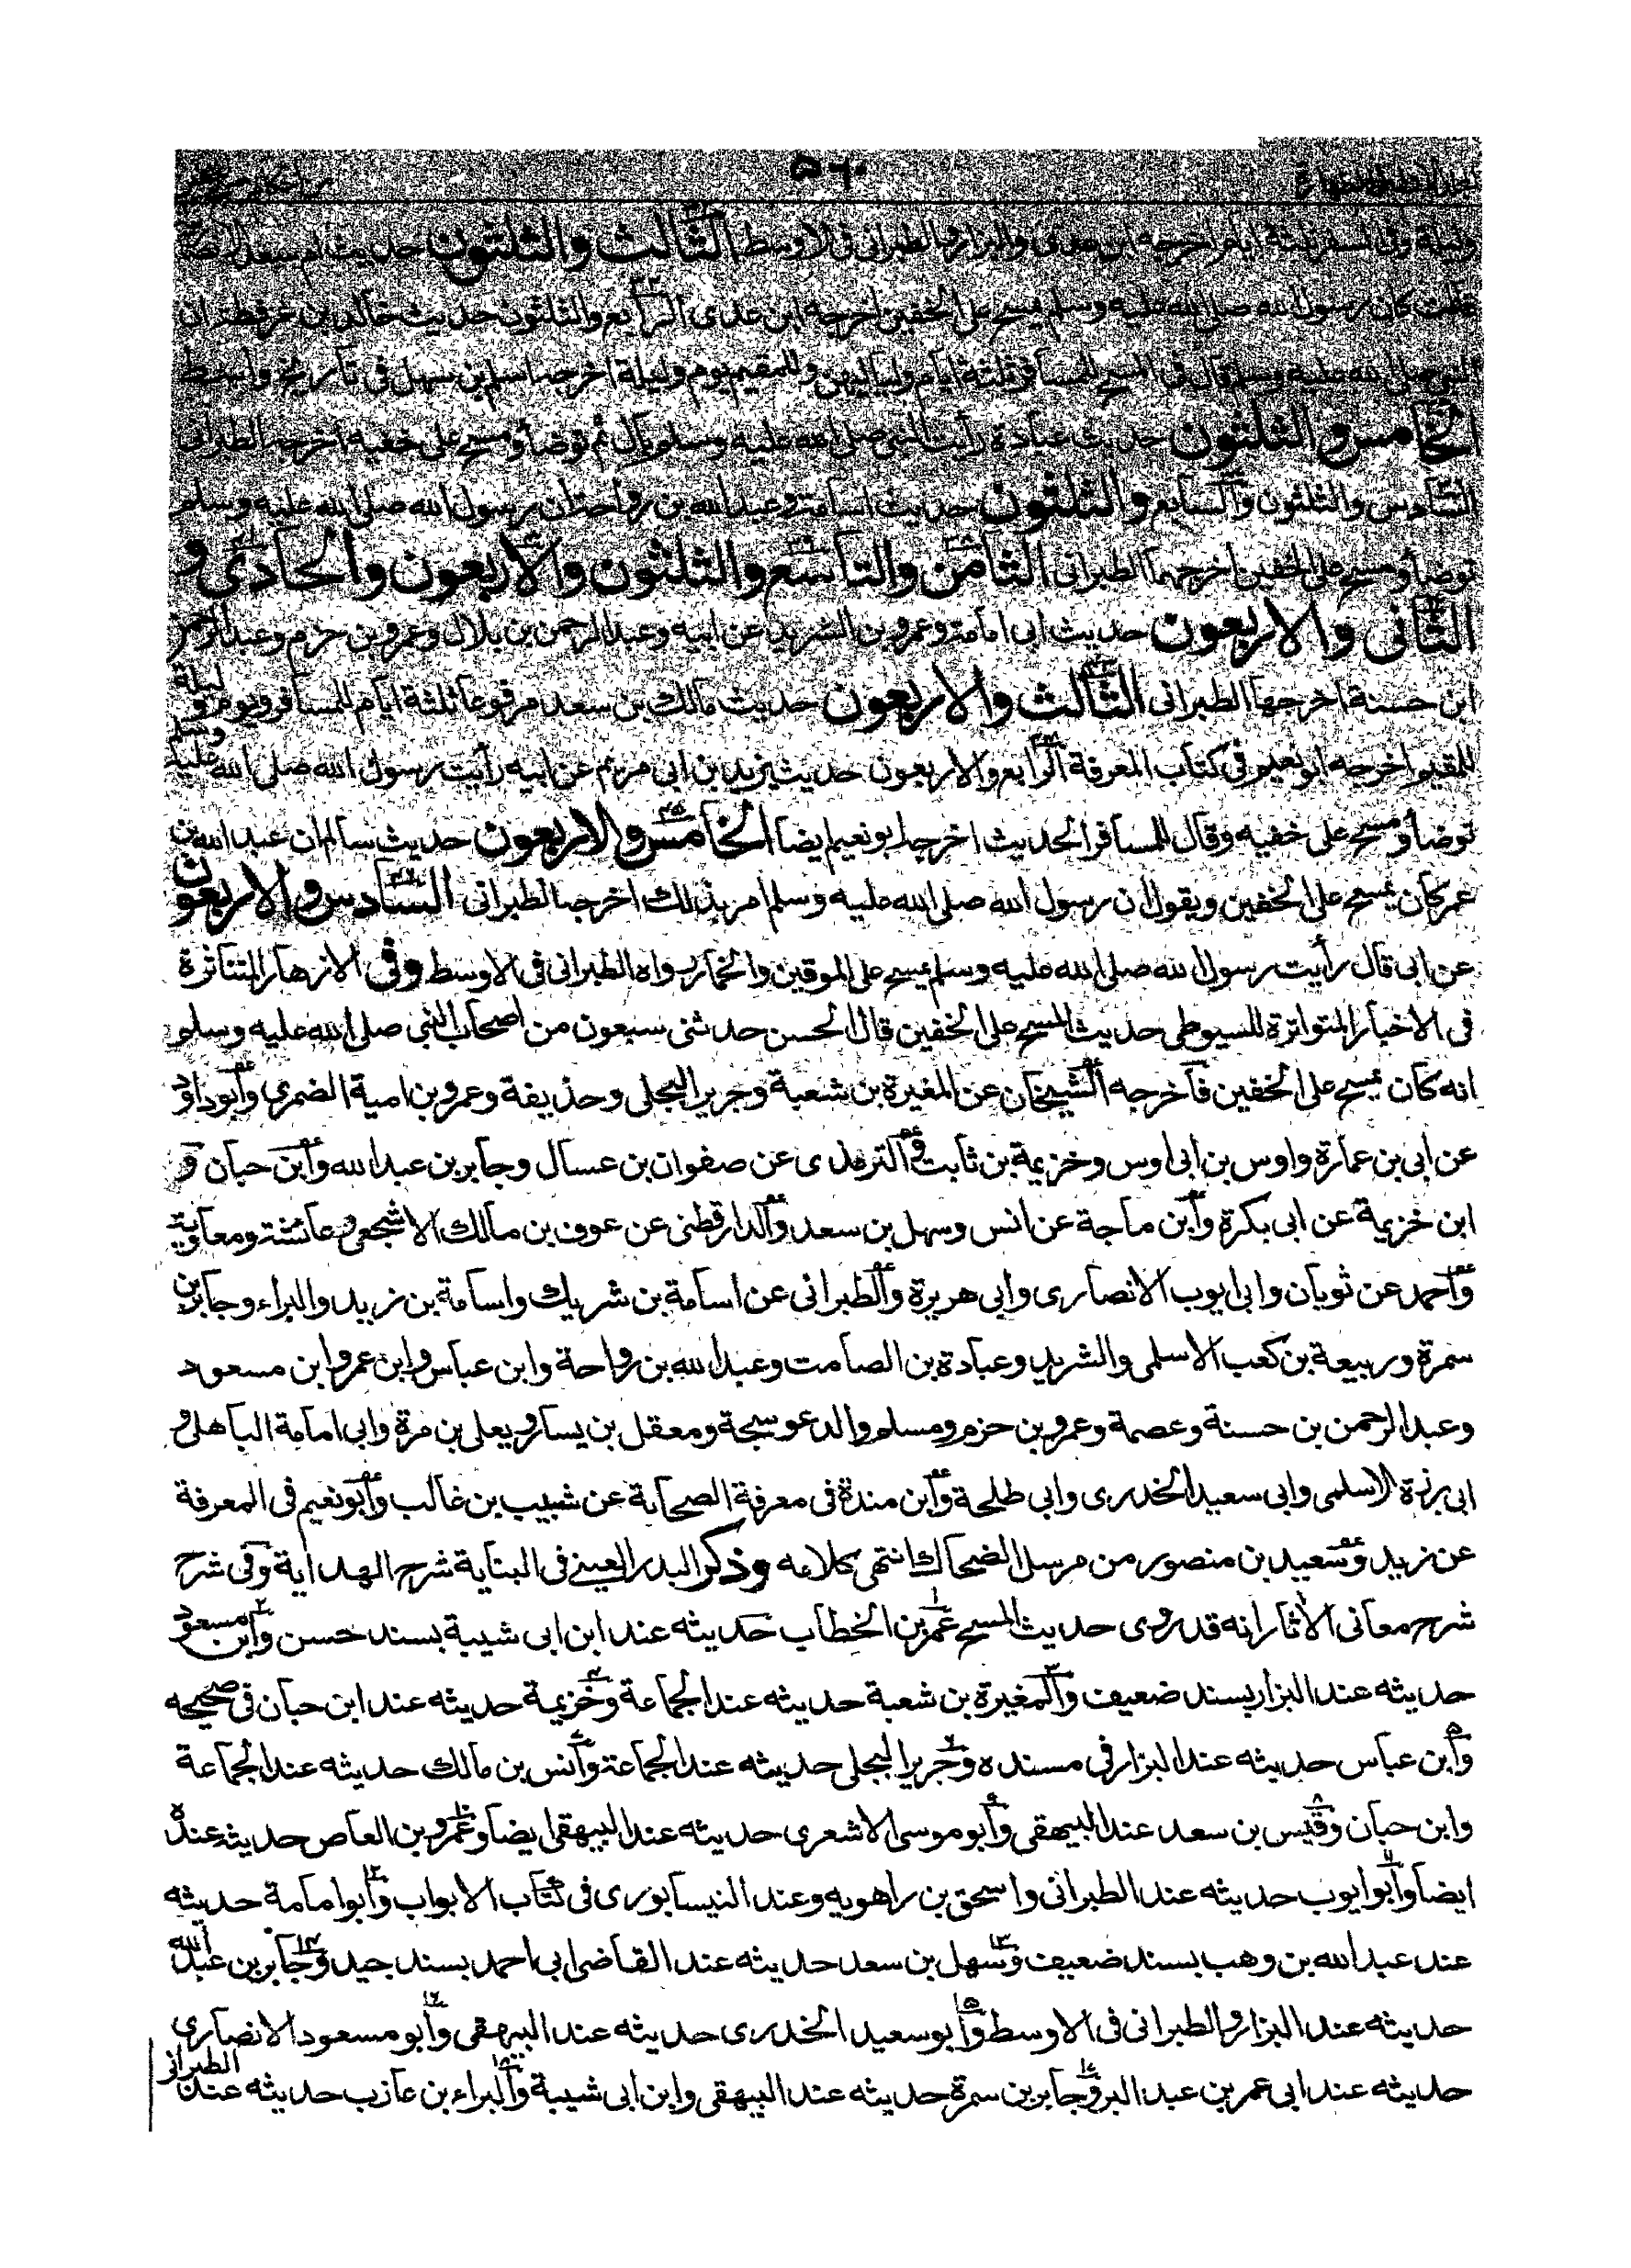 ٥٦٠
وليلة وفى السفر ثلثة ايام اخرجه ابن عدى والبزار والطبرانى فى الاوسط الثالث والثلثون حديث ام سعد الانصارية
قالت كان رسول الله صلى الله عليه وسلم يمسح على الخفين اخرجه ابن عدى الرابع والثلثون حديث خالد بن عرفطة ان
النبى صلى الله عليه وسلم قال فى المسح للمسافر ثلثة ايام ولياليهن وللمقيم يوم وليلة اخرجه اسلم بن سهل فى تاريخ واسط
الخامس والثلثون حديث عبادة رأيت النبى صلى الله عليه وسلم بال ثم توضأ ومسح على خفيه اخرجه الطبرانى
السادس والثلثون والسابع والثلثون حديث اسامة وعبد الله بن رواحة ان رسول الله صلى الله عليه وسلم
توضأ ومسح على الخفين اخرجهما الطبرانى الثامن والتاسع والثلثون والاربعون والحادى و
الثانى والاربعون حديث ابى امامة وعمرو بن الشريد عن ابيه وعبد الرحمن بن بلال وعمرو بن حزم وعبد الرحمن
ابن حسنة اخرجها الطبرانى الثالث والاربعون حديث مالك بن سعد مرفوعا ثلثة ايام للمسافر ويوم وليلة
للمقيم اخرجه ابو نعيم فى كتاب المعرفة الرابع والاربعون حديث يزيد بن ابى مريم عن ابيه رأيت رسول الله صلى الله عليه وسلم
توضأ ومسح على خفيه وقال للمسافر الحديث اخرجه ابو نعيم ايضا الخامس والاربعون حديث سالم ان عبد الله بن
عمر كان يمسح على الخفين ويقول ان رسول الله صلى الله عليه وسلم امر بذلك اخرجه الطبرانى السادس والاربعون
عن ابى قال رأيت رسول الله صلى الله عليه وسلم يمسح على الموقين والخمار رواه الطبرانى فى الاوسط وفى الازهار المتناثرة
فى الاخبار المتواترة للسيوطى حديث المسح على الخفين قال الحسن حدثنى سبعون من اصحاب النبى صلى الله عليه وسلم
انه كان يمسح على الخفين فاخرجه الشيخان عن المغيرة بن شعبة وجرير البجلى وحذيفة وعمرو بن امية الضمرى وابو داود
عن ابى بن عمارة واوس بن ابى اوس وخزيمة بن ثابت والترمذى عن صفوان بن عسال وجابر بن عبد الله وابن حبان و
ابن خزيمة عن ابى بكرة وابن ماجة عن انس وسهل بن سعد والدارقطنى عن عوف بن مالك الاشجعى وعائشة ومعاوية
واحمد عن ثوبان وابى ايوب الانصارى وابى هريرة والطبرانى عن اسامة بن شريك واسامة بن زيد والبراء وجابر بن
سمرة وربيعة بن كعب الاسلمى والشريد وعبادة بن الصامت وعبد الله بن رواحة وابن عباس وابن عمر وابن مسعود
وعبد الرحمن بن حسنة وعصمة وعمرو بن حزم ومسلم والد عوسجة ومعقل بن يسار ويعلى بن مرة وابى امامة الباهلى و
ابى برزة الاسلمى وابى سعيد الخدرى وابى طلحة وابن مندة فى معرفة الصحابة عن شبيب بن غالب وابو نعيم فى المعرفة
عن زيد وسعيد بن منصور من مرسل الضحاك انتهى كلامه وذكر البدر العينى فى البناية شرح الهداية وفى شرح
شرح معانى الأثار انه قد روى حديث المسح عمر بن الخطاب حديثه عند ابن ابى شيبة بسند حسن وابن مسعود
حديثه عند البزار بسند ضعيف والمغيرة بن شعبة حديثه عند الجماعة وخزيمة حديثه عند ابن حبان فى صحيحه
وابن عباس حديثه عند البزار فى مسنده وجرير البجلى حديثه عند الجماعة وانس بن مالك حديثه عند الجماعة
وابن حبان وقيس بن سعد عند البيهقى وابو موسى الاشعرى حديثه عند البيهقى ايضا وعمرو بن العاص حديثه عنده
ايضا وابو ايوب حديثه عند الطبرانى واسحق بن راهويه وعند النيسابورى فى كتاب الابواب وابو امامة حديثه
عند عبد الله بن وهب بسند ضعيف وسهل بن سعد حديثه عند القاضى ابى احمد بسند جيد وجابر بن عبد الله
حديثه عند البزار والطبرانى فى الاوسط وابو سعيد الخدرى حديثه عند البيهقى وابو مسعود الانصارى
حديثه عند ابى عمر بن عبد البر وجابر بن سمرة حديثه عند البيهقى وابن ابى شيبة والبراء بن عازب حديثه عند الطبرانى